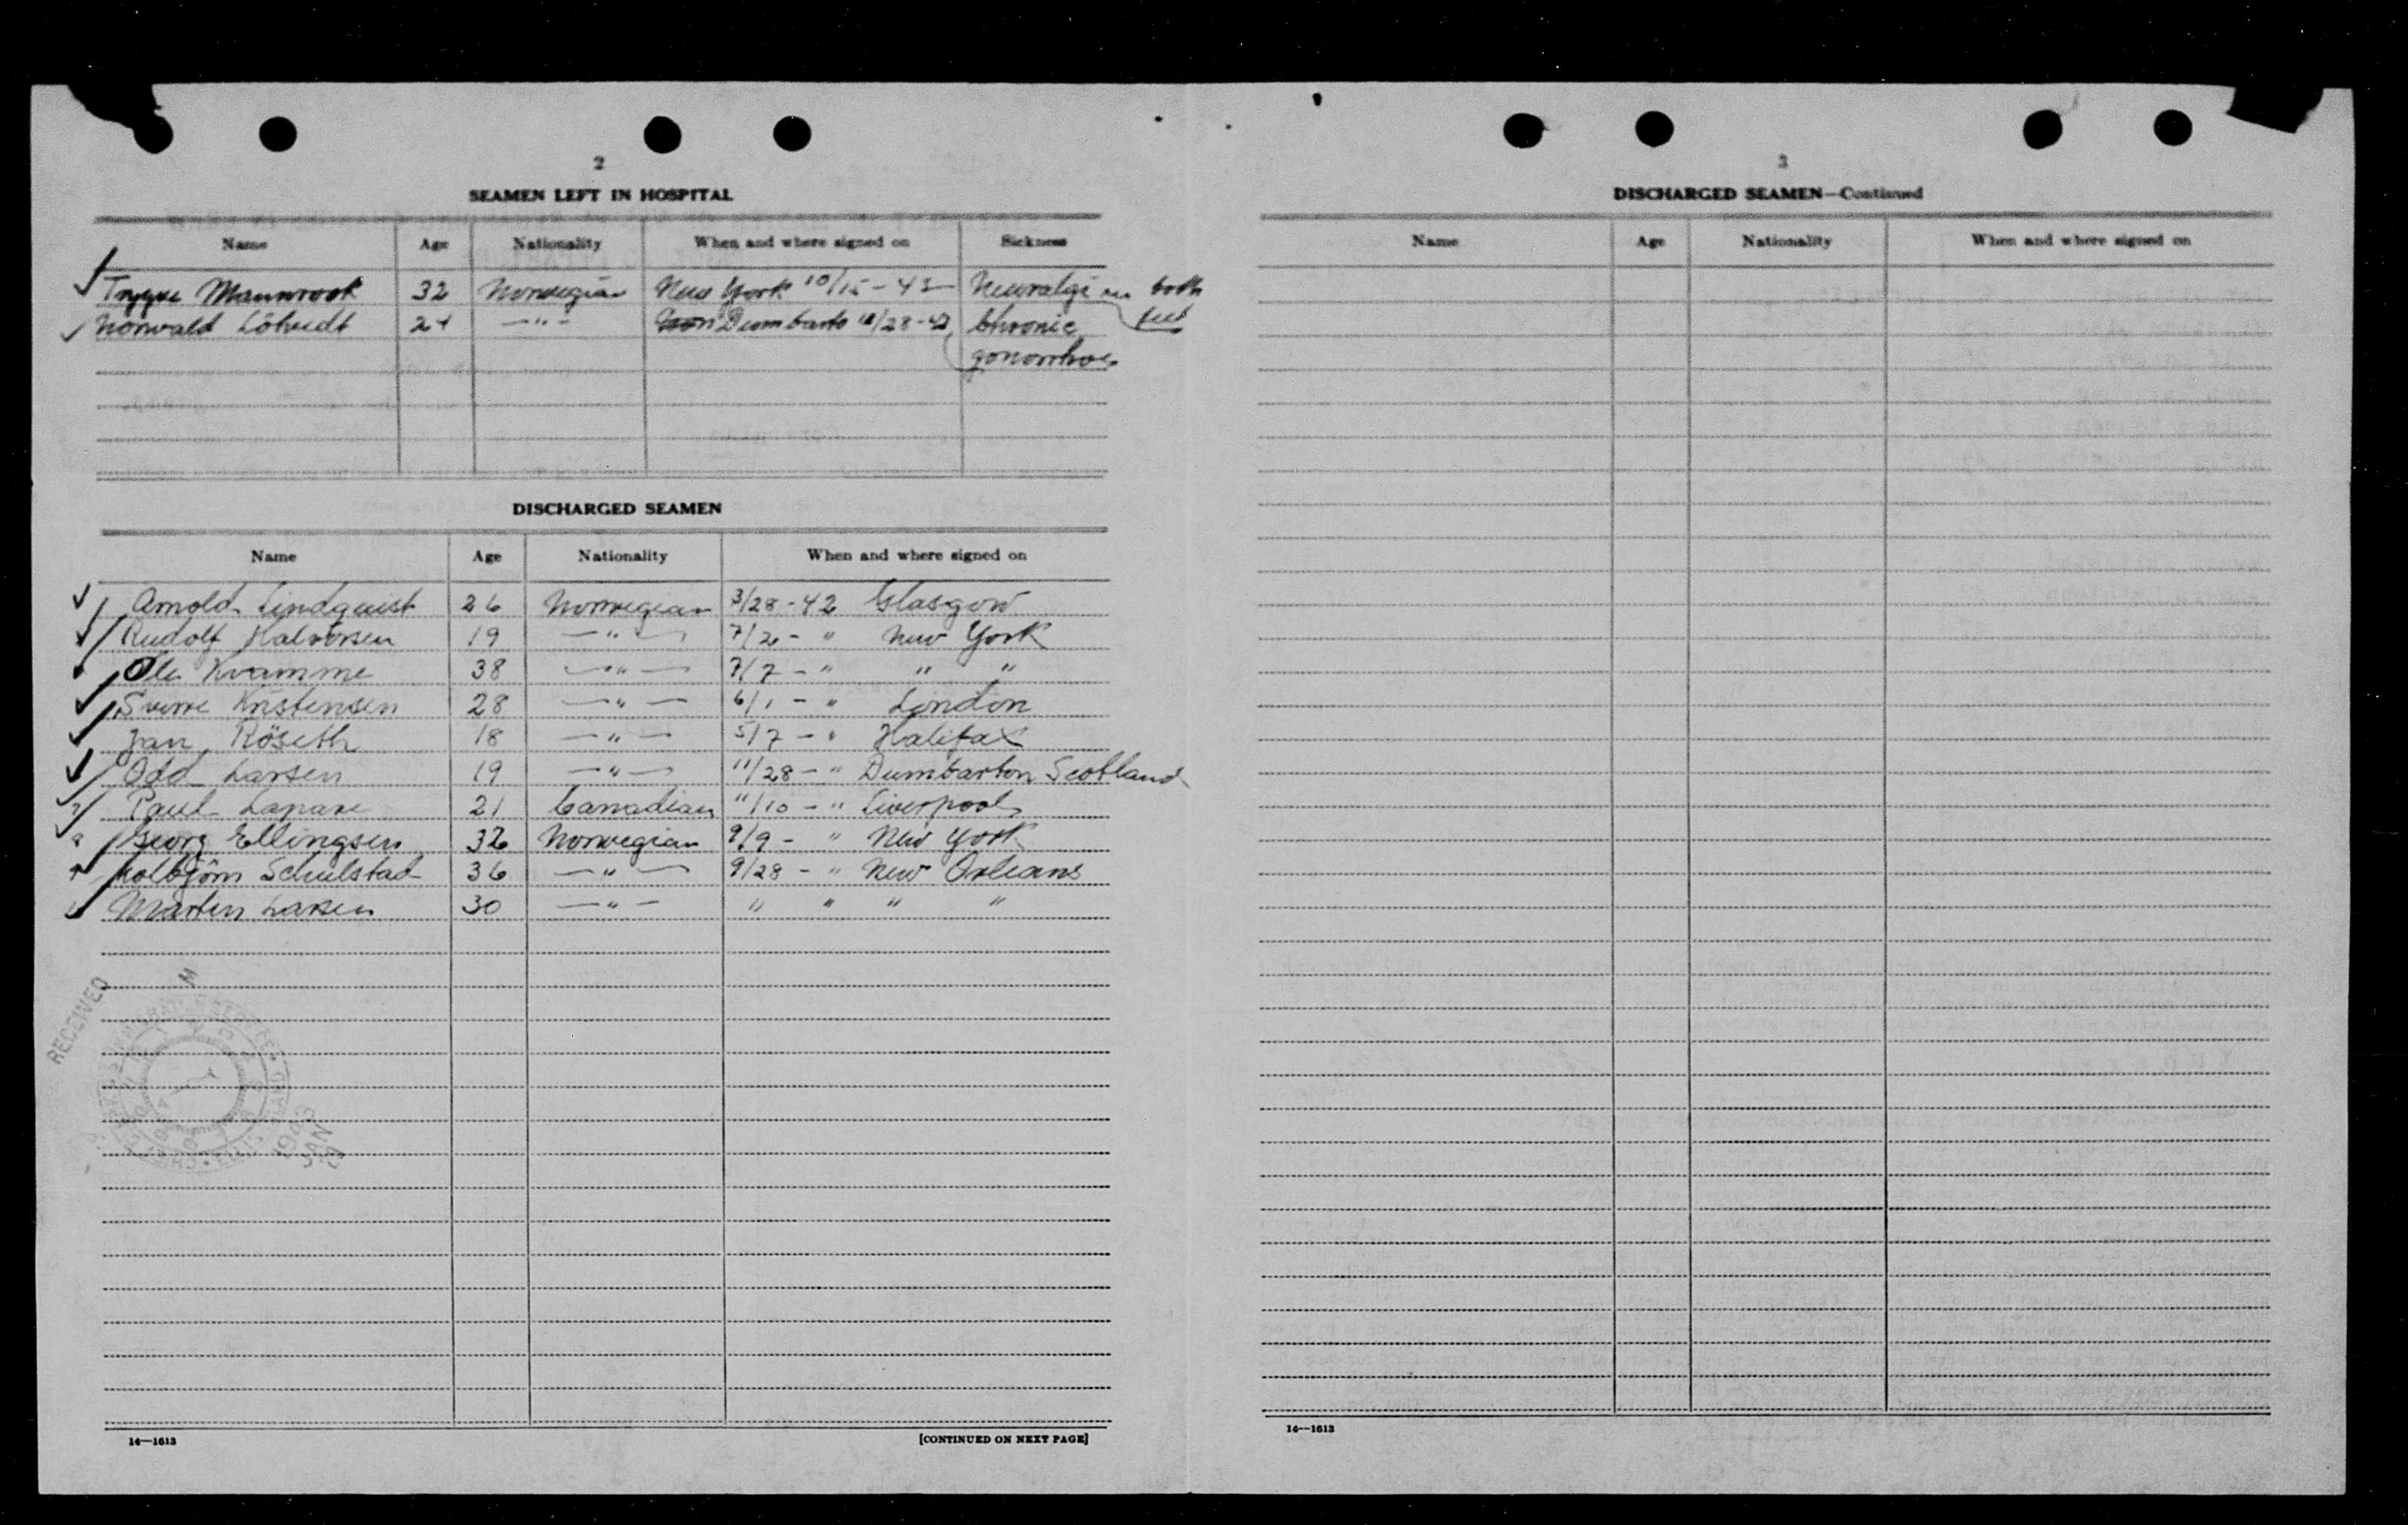 2
SEAMEN LEFT IN HOSPITAL
Name Age Nationality When and where signed on Sickness
Trygve 32 Norwegian New York 10/15-42 Neuralgi in both feet
Norwald 24 —"— Dumbarto 11/28-42 Chronic
gonorrhoe
DISCHARGED SEAMEN
Name Age Nationality When and where signed on
Arnold Lindquist 26 Norwegian 3/28-42 Glasgow
Rudolf Halvorsen 19 —"— 7/2-" New York
Ole Kvamme 38 —"— 7/7-" " "
Sverre Kristensen 28 —"— 6/1-" London
Jan Röseth 18 —"— 5/7-" Halifax
Odd Larsen 19 —"— 11/28-" Dumbarton Scotland
Paul Lapare 21 Canadian 11/10-" Liverpool
Georg Ellingsen 32 Norwegian 9/9-" New York
Kolbjörn Schulstad 36 —"— 9/28-" New Orleans
Martin Larsen 30 —"— " " " "
RECEIVED
14—1613
[CONTINUED ON NEXT PAGE]
3
DISCHARGED SEAMEN—Continued
Name Age Nationality When and where signed on
14—1613